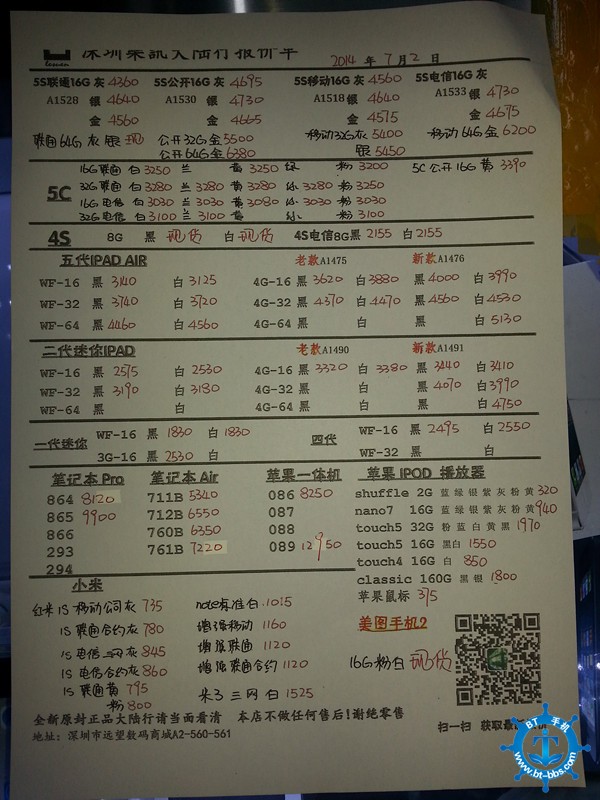 深圳 訊大陆行报价单
2014 年 7月2 日
5S联通16G 灰 4360 5S公开16G 灰 4695 5S移动16G 灰 4560 5S电信16G 灰
A1528 银 4640 A1530 银 4730 A1518 银 4640 A1533 银 4730
金 4560 金 4665 金 4575 金 4675
联通64G灰 银 现 公开32G金5500 移动32G灰 5400 移动 64G金 6200
公开64G金6380 银 5450
5C
16G联通 白3250 兰 黄3250 绿 粉 3200 5C 公开 16G 黄 3390
32G联通 白3280 兰3280 黄3280 绿3280 粉3250
16G电信 白3030 兰3030 黄3080 绿3030 粉3030
32G电信 白3100 兰3100 黄 绿 粉 3100
4S 8G 黑 现货 白现货 4S电信8G黑 2155 白2155
五代IPAD AIR 老款A1475 新款A1476
WF-16 黑 3140 白 3125 4G-16 黑 3620 白3880 黑4000 白3990
WF-32 黑 3740 白 3720 4G-32 黑 4370 白4470 黑4560 白4530
WF-64 黑 4460 白 4560 4G-64 黑 白 黑 白 5130
二代迷你IPAD 老款A1490 新款A1491
WF-16 黑 2575 白 2530 4G-16 黑 3320 白 3380 黑 3440 白3410
WF-32 黑 3190 白 3180 4G-32 黑 白 黑 4070 白3990
WF-64 黑 白 4G-64 黑 白 黑 白4750
一代迷你 WF-16 黑 1830 白 1830 四代 WF-16 黑 2495 白 2550
3G-16 黑 2530 白 WF-32 黑 白
笔记本 Pro 笔记本 Air 苹果一体机 苹果 IPOD 播放器
864 8120 711B 5340 086 8250 shuffle 2G 蓝绿银紫灰粉黄320
865 9900 712B 6550 087 nano7 16G 蓝绿银紫灰粉黄940
866 760B 6350 088 touch5 32G 粉蓝白黄黑 1970
293 761B 7220 089 12950 touch5 16G 黑白 1550
294 touch4 16G 白 850
classic 160G 黑银 1800
苹果鼠标 375
小米
红米 1S 移动公司灰 735 note标准白 1015
1S 联通合约灰 780 增强移动 1160
1S 电信三网灰 845 增强联通 1120
1S 电信合约灰 860 增强联通合约 1120
1S 联通黄 795 米3 三网 白 1525
粉 800
美图手机2
16G粉白 现货
全新原封正品大陆行请当面看清 本店不做任何售后!谢绝零售
地址: 深圳市远望数码商城A2-560-561
扫一扫 获取最
BT 手机
www.bt-bbs.com